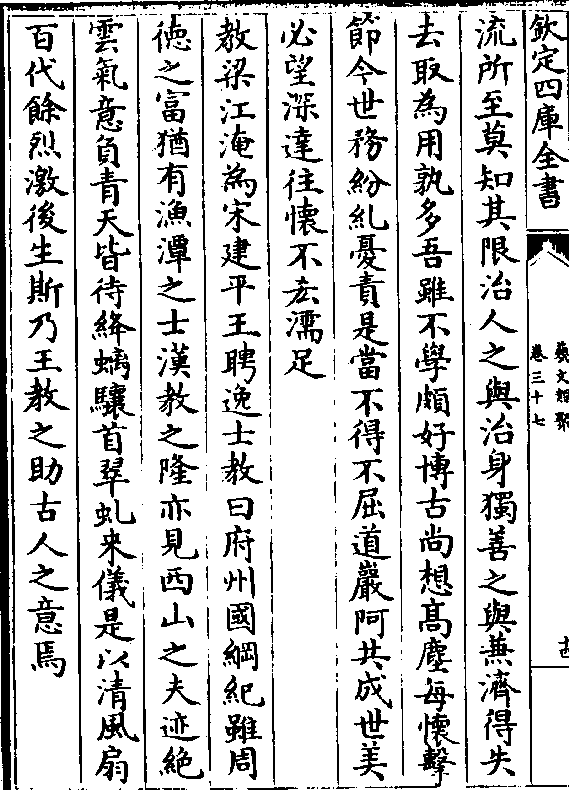 欽定四庫全書
藝文類聚
卷三十七
十四
流所至莫知其限治人之與治身獨善之與兼濟得失
去取為用孰多吾雖不學頗好博古尚想髙塵每懷擊
節今世務紛糺憂責是當不得不屈道巖阿共成世美
必望深達往懷不𠫤濡足
教梁江淹為宋建平王聘逸士教曰府州國綱紀雖周
徳之富猶有漁潭之士漢教之隆亦見西山之夫迹絶
雲氣意負青天皆待絳螭驤首翠虬来儀是以清風扇
百代餘烈激後生斯乃王教之助古人之意焉